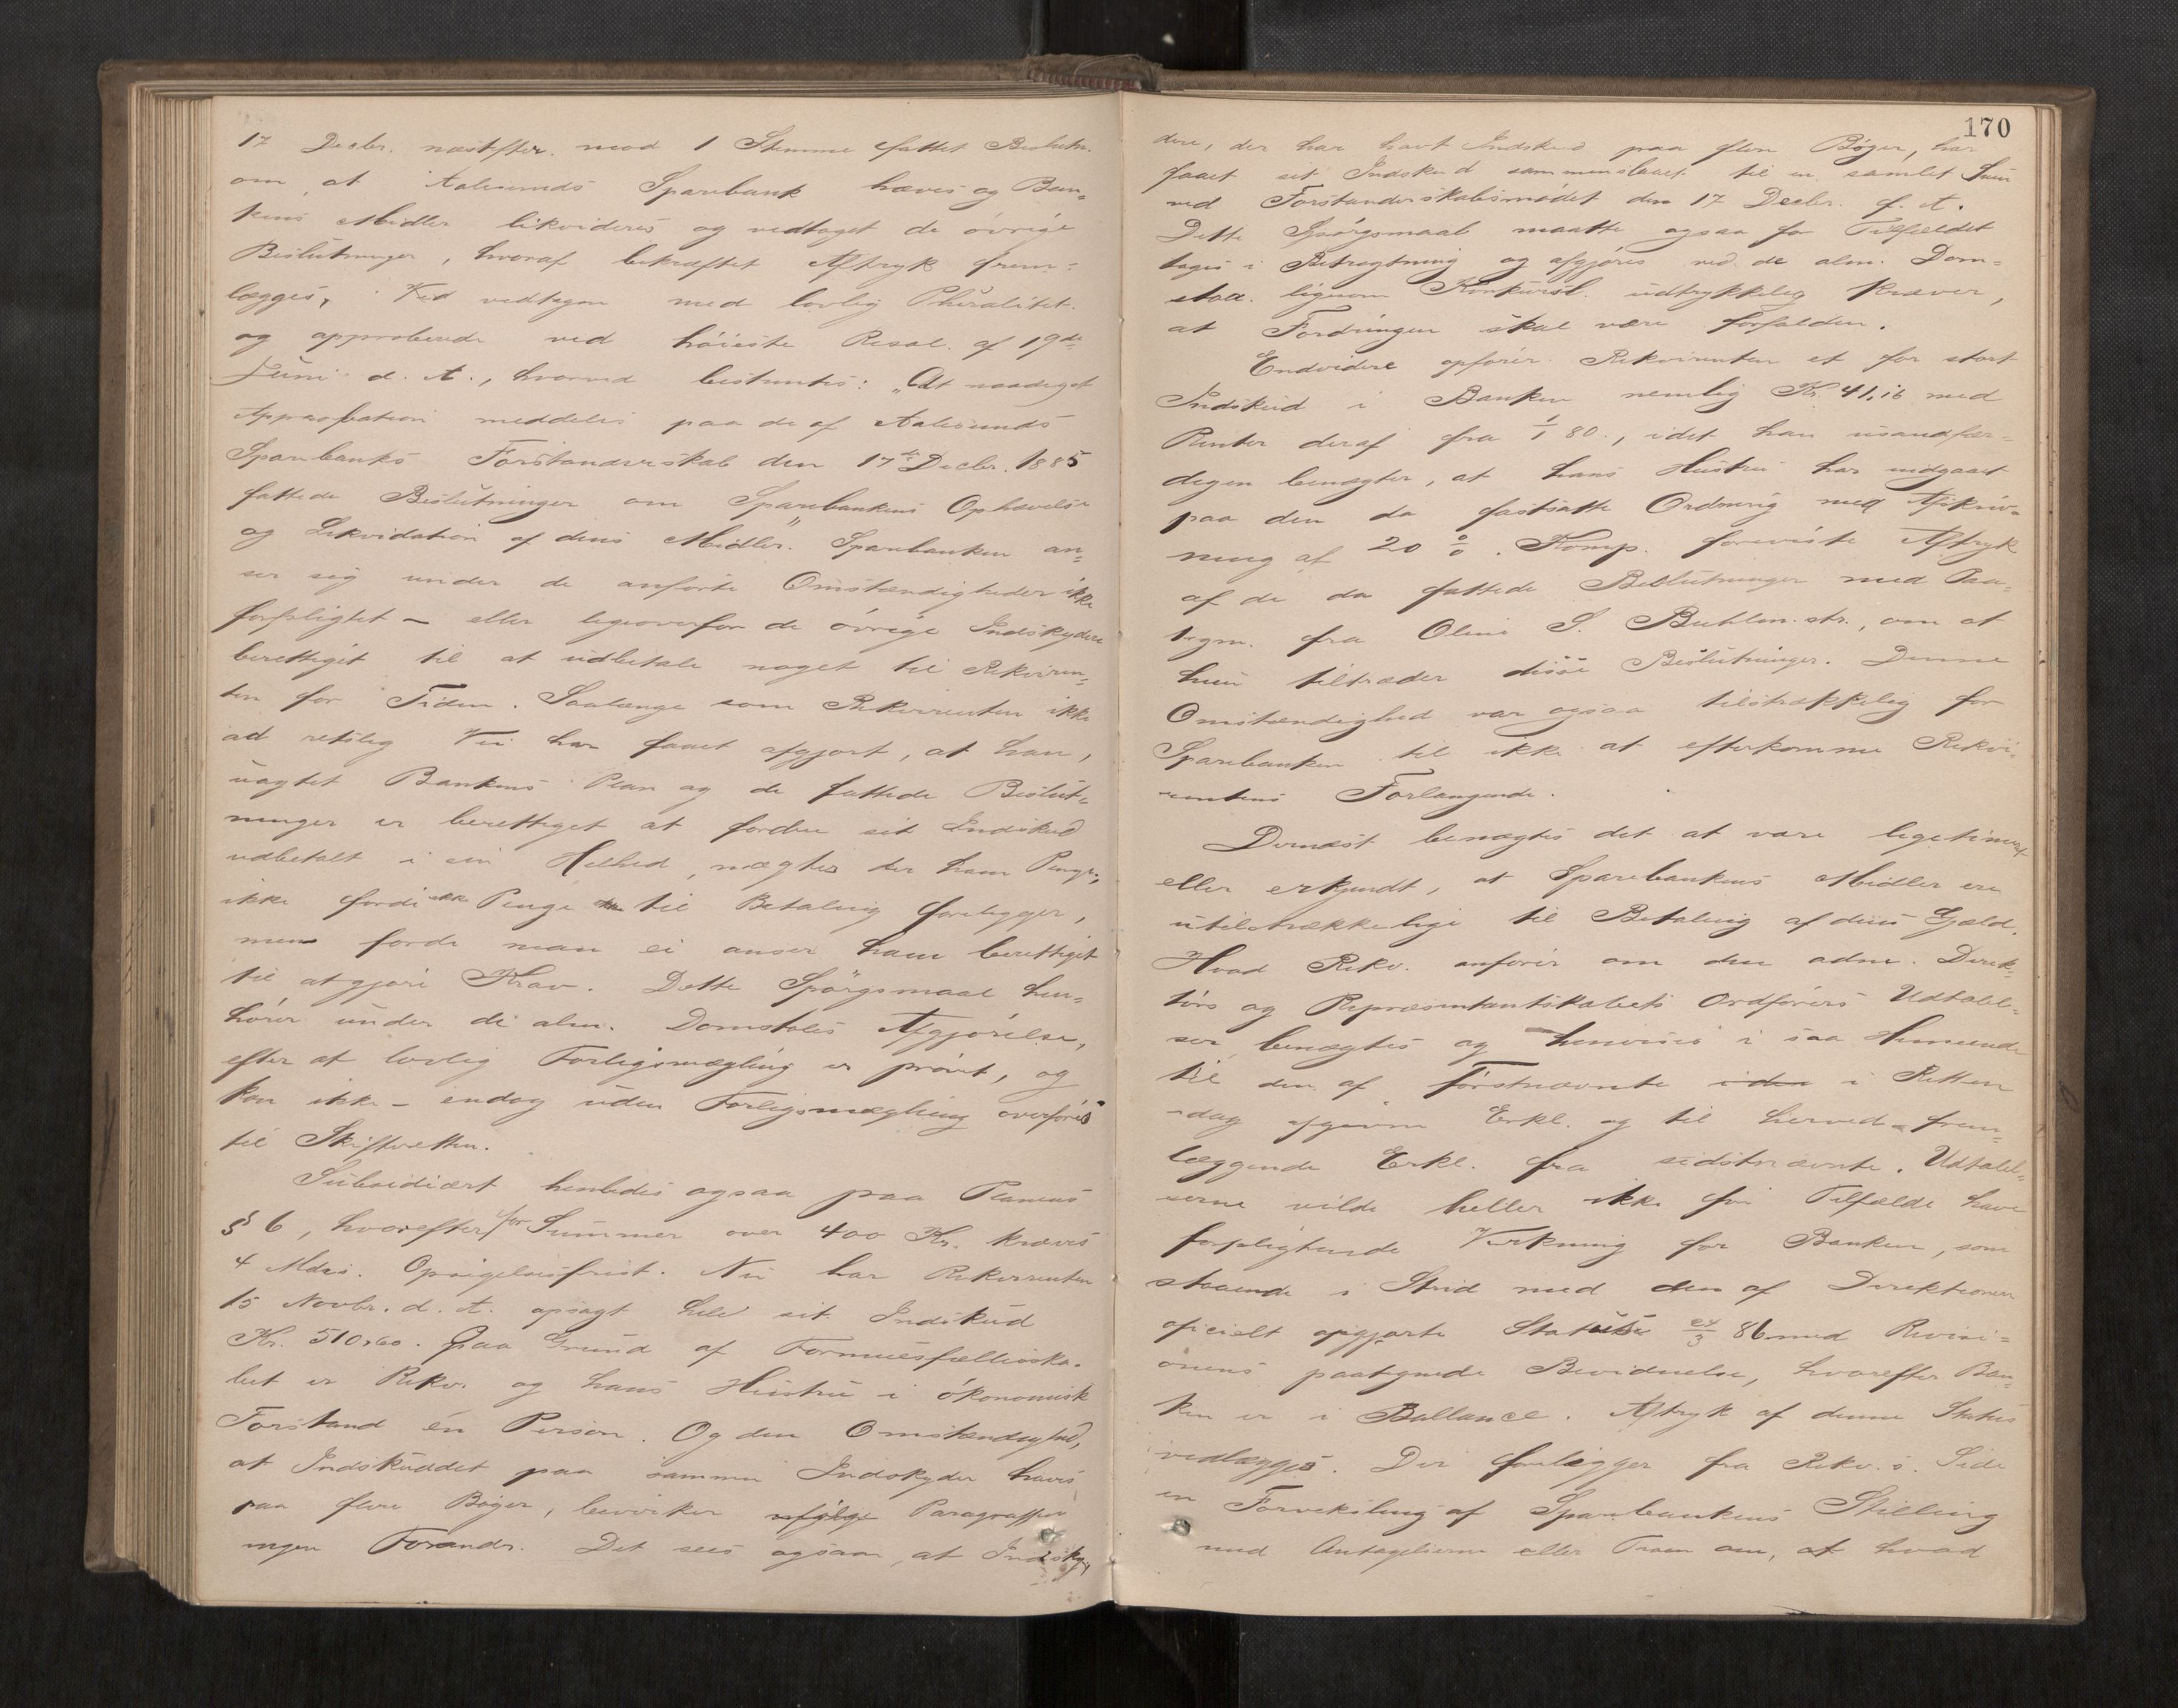 17 Decbr. næstefter mod 1 Stemme fattet Beslutn.
om at Aalesunds Sparebank hæves og Ban-
kens Midler likvideres og vedtaget de øvrige
Beslutninger, hvoraf bekræftet Aftryk frem-
lægges, vedtagen med lovlig Pluralitet
og approberede ved høieste Resol. af 19de
Juni d. A., hvorved bestemtes: "At naadigst
Approbation meddeles paa de af Aalesunds
Sparebanks Forstanderskab den 17de Decbr. 1885
fattede Beslutninger om Sparebankens Ophævelse
og Likvidation af dens Midler." Sparebanken an-
ser sig under de anførte Omstændigheder ikke
forpligtet - eller ligeoverfor de øvrige Indskydere
berettiget til at udbetale noget til Rekviren-
ten for Tiden. Saalænge som Rekvirenten ikke
ad retslig Vei har faaet afgjort, at han,
uagtet Bankens Plan og de fattede Beslut-
ninger er berettiget at fordre sit Indskud
udbetalt i sin Helhed, nægtes der ham Penge,
ikke fordi ikke Penge til Betaling foreligger,
men fordi man ei anser ham berettiget
til at gjøre Krav. Dette Spørgsmaal hen-
hører under de alm. Domstoles Afgjørelse,
efter at lovlig Forligsmægling er prøvet, og
kan ikke - endog uden Forligsmægling overføres
til Skifteretten.
Subsidiært henledes ogsaa paa Planens
§ 6, hvorefter for Summer over 400 Kr. kræves
4 Mdrs. Opsigelsesfrist. Nu har Rekvirenten
15 Novbr. d. A. opsagt hele sit Indskud
Kr. 510,60. Paa Grund af Formuesfællesska-
bet er Rekv. og hans Hustru i økonomisk
Forstand én Person. Og den Omstændighed,
at Indskuddet paa samme Indskyder haves
paa flere Bøger, bevirker ifølge Paragraffen
ingen Forandr. Det sees ogsaa, at Indsky-
170
dere, der har havt Indskud paa flere Bøger, har
faaet sit Indskud sammenslaaet til en samlet Sum
ved Forstanderskabsmødet den 17 Decbr. f. A.
Dette Spørgsmaal maatte ogsaa for Tilfældet
tages i Betragtning og afgjøres ved de alm. Dom-
stole. ligesom Konkursl. udtrykkelig kræver,
at Fordringen skal være forfalden.
Endvidere opfører Rekvirenten et for stort
Indskud i Banken nemlig Kr. 41,16 med
Renter deraf fra 1/1 80., idet han usandfær-
digen benægter, at hans Hustru har indgaaet
paa den da fastsatte Ordning med Afskriv-
ning af 20 %. Komp. foreviste Aftryk
af de da fattede Beslutninger med Paa-
tegn. fra Oline S. om at
hun tiltræder disse Beslutninger. Denne
Omstændighed var ogsaa tilstrækkelig for
Sparebanken til ikke at efterkomme Rekvi-
rentens Forlangende.
Dernæst benægtes det at være legitimeret
eller erkjendt, at Sparebankens Midler ere
utilstrækkelige til Betaling af dens Gjæld.
Hvad Rekv. anfører om den adm. Direk-
tørs og Repræsentantskabets Ordførers Udtalel-
ser benægtes og henvises i saa Henseende
til den af førstnævnte i Retten
idag afgivne Erkl. og til herved frem-
læggende Erkl. fra sidstnævnte. Udtalel-
serne vilde heller ikke for Tilfælde have
forpligtende Virkning for Banken, som
staaende i Strid med den af Direktionen
oficielt opgjorte Status 24/3 86 med Revisi-
onens paategnede Bevidnelse, hvorefter Ban-
ken er i Ballance. Aftryk af denne Status
vedlægges. Der foreligger fra Rekv.s Side
en Forveksling af Sparebankens Stilling
med Antagelserne eller Troen om, at hvad